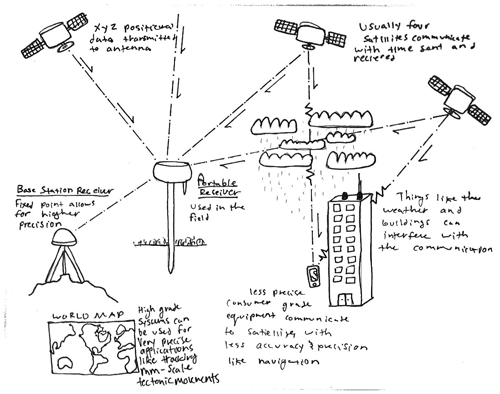 XYZ positional
data transmitted
to antenna
Usually four
Satellites communicate
with time sent and
recieved
Base Station Receiver
Fixed point allows
for higher
precision
Portable
Receiver
Used in the
Field
Things like the
weather and
buildings can
interfere with
the communication
less precise
consumer grade
equipment communicate
to satellites with
less accuracy & precision
like navigation
WORLD MAP
High grade
systems can
be used for
very precise
applications
like tracking
mm-scale
tectonic movements